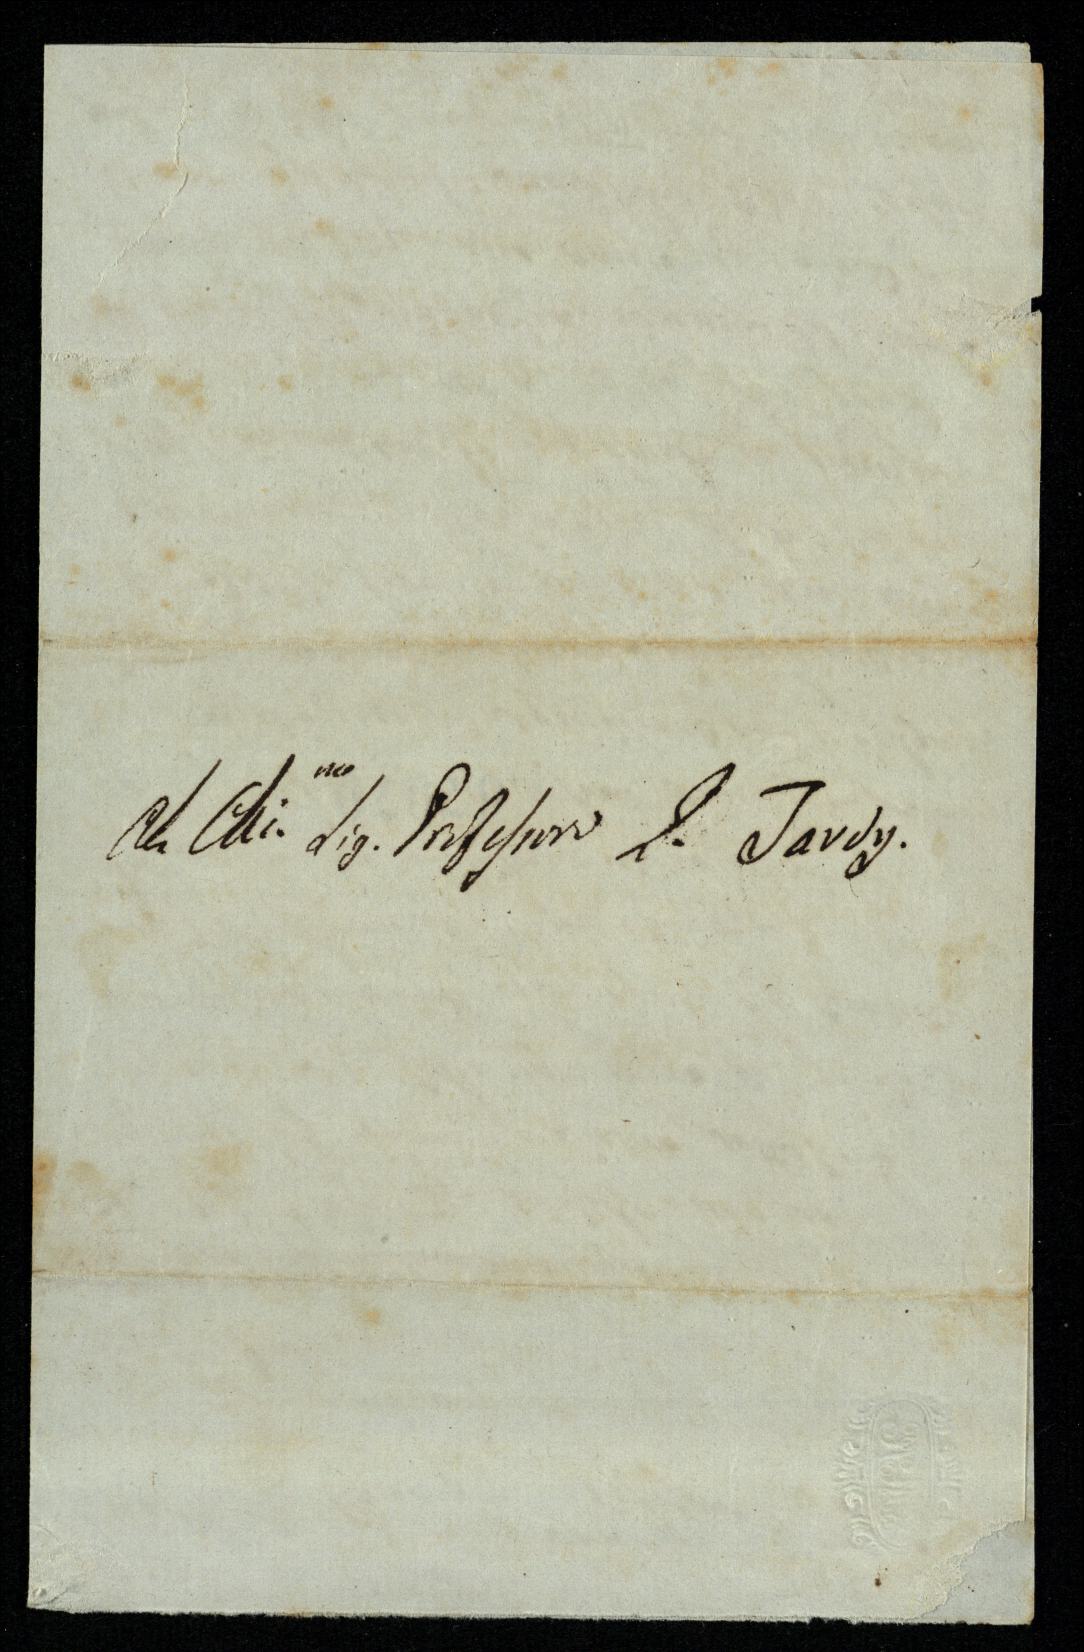 Al Chi.mo Sig. Professore P. Tardy.